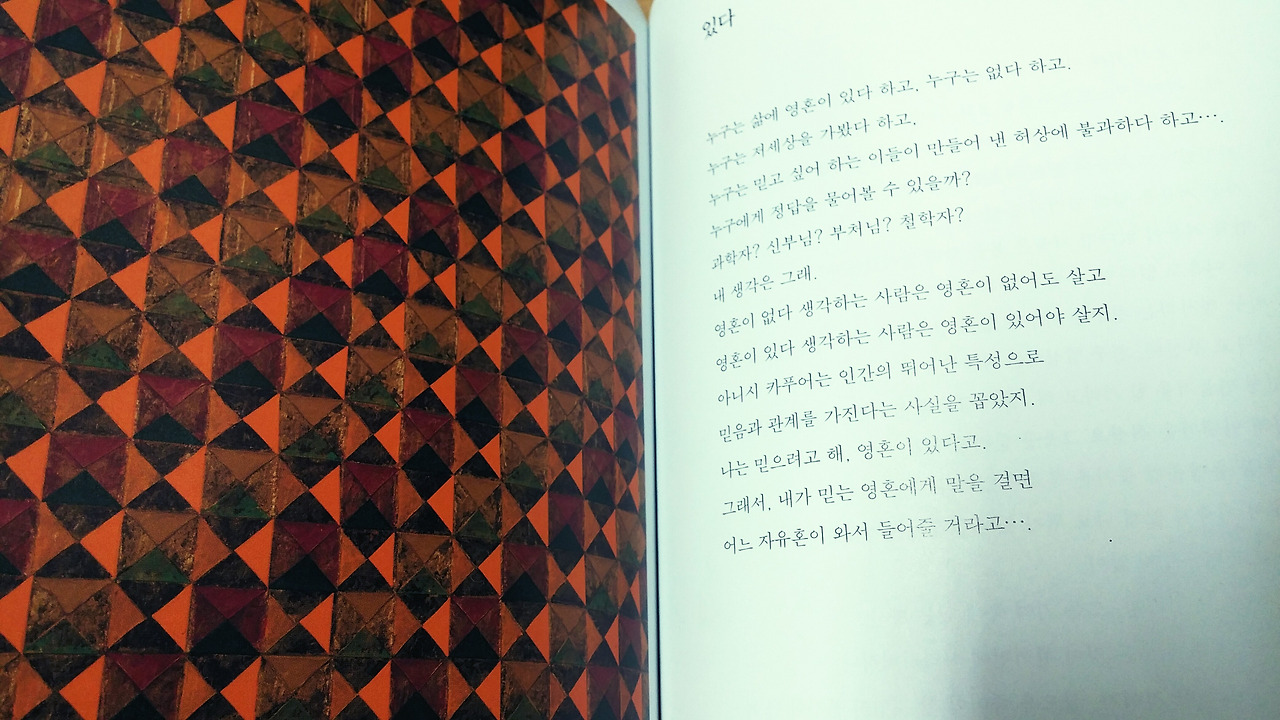 있다
누구는 삶에 영혼이 있다 하고, 누구는 없다 하고.
누구는 저세상을 가봤다 하고.
누구는 믿고 싶어 하는 이들이 만들어 낸 허상에 불과하다 하고….
누구에게 정답을 물어볼 수 있을까?
과학자? 신부님? 부처님? 철학자?
내 생각은 그래.
영혼이 없다 생각하는 사람은 영혼이 없어도 살고
영혼이 있다 생각하는 사람은 영혼이 있어야 살지.
아니시 카푸어는 인간의 뛰어난 특성으로
믿음과 관계를 가진다는 사실을 꼽았지.
나는 믿으려고 해, 영혼이 있다고.
그래서, 내가 믿는 영혼에게 말을 걸면
어느 자유혼이 와서 들어줄 거라고….